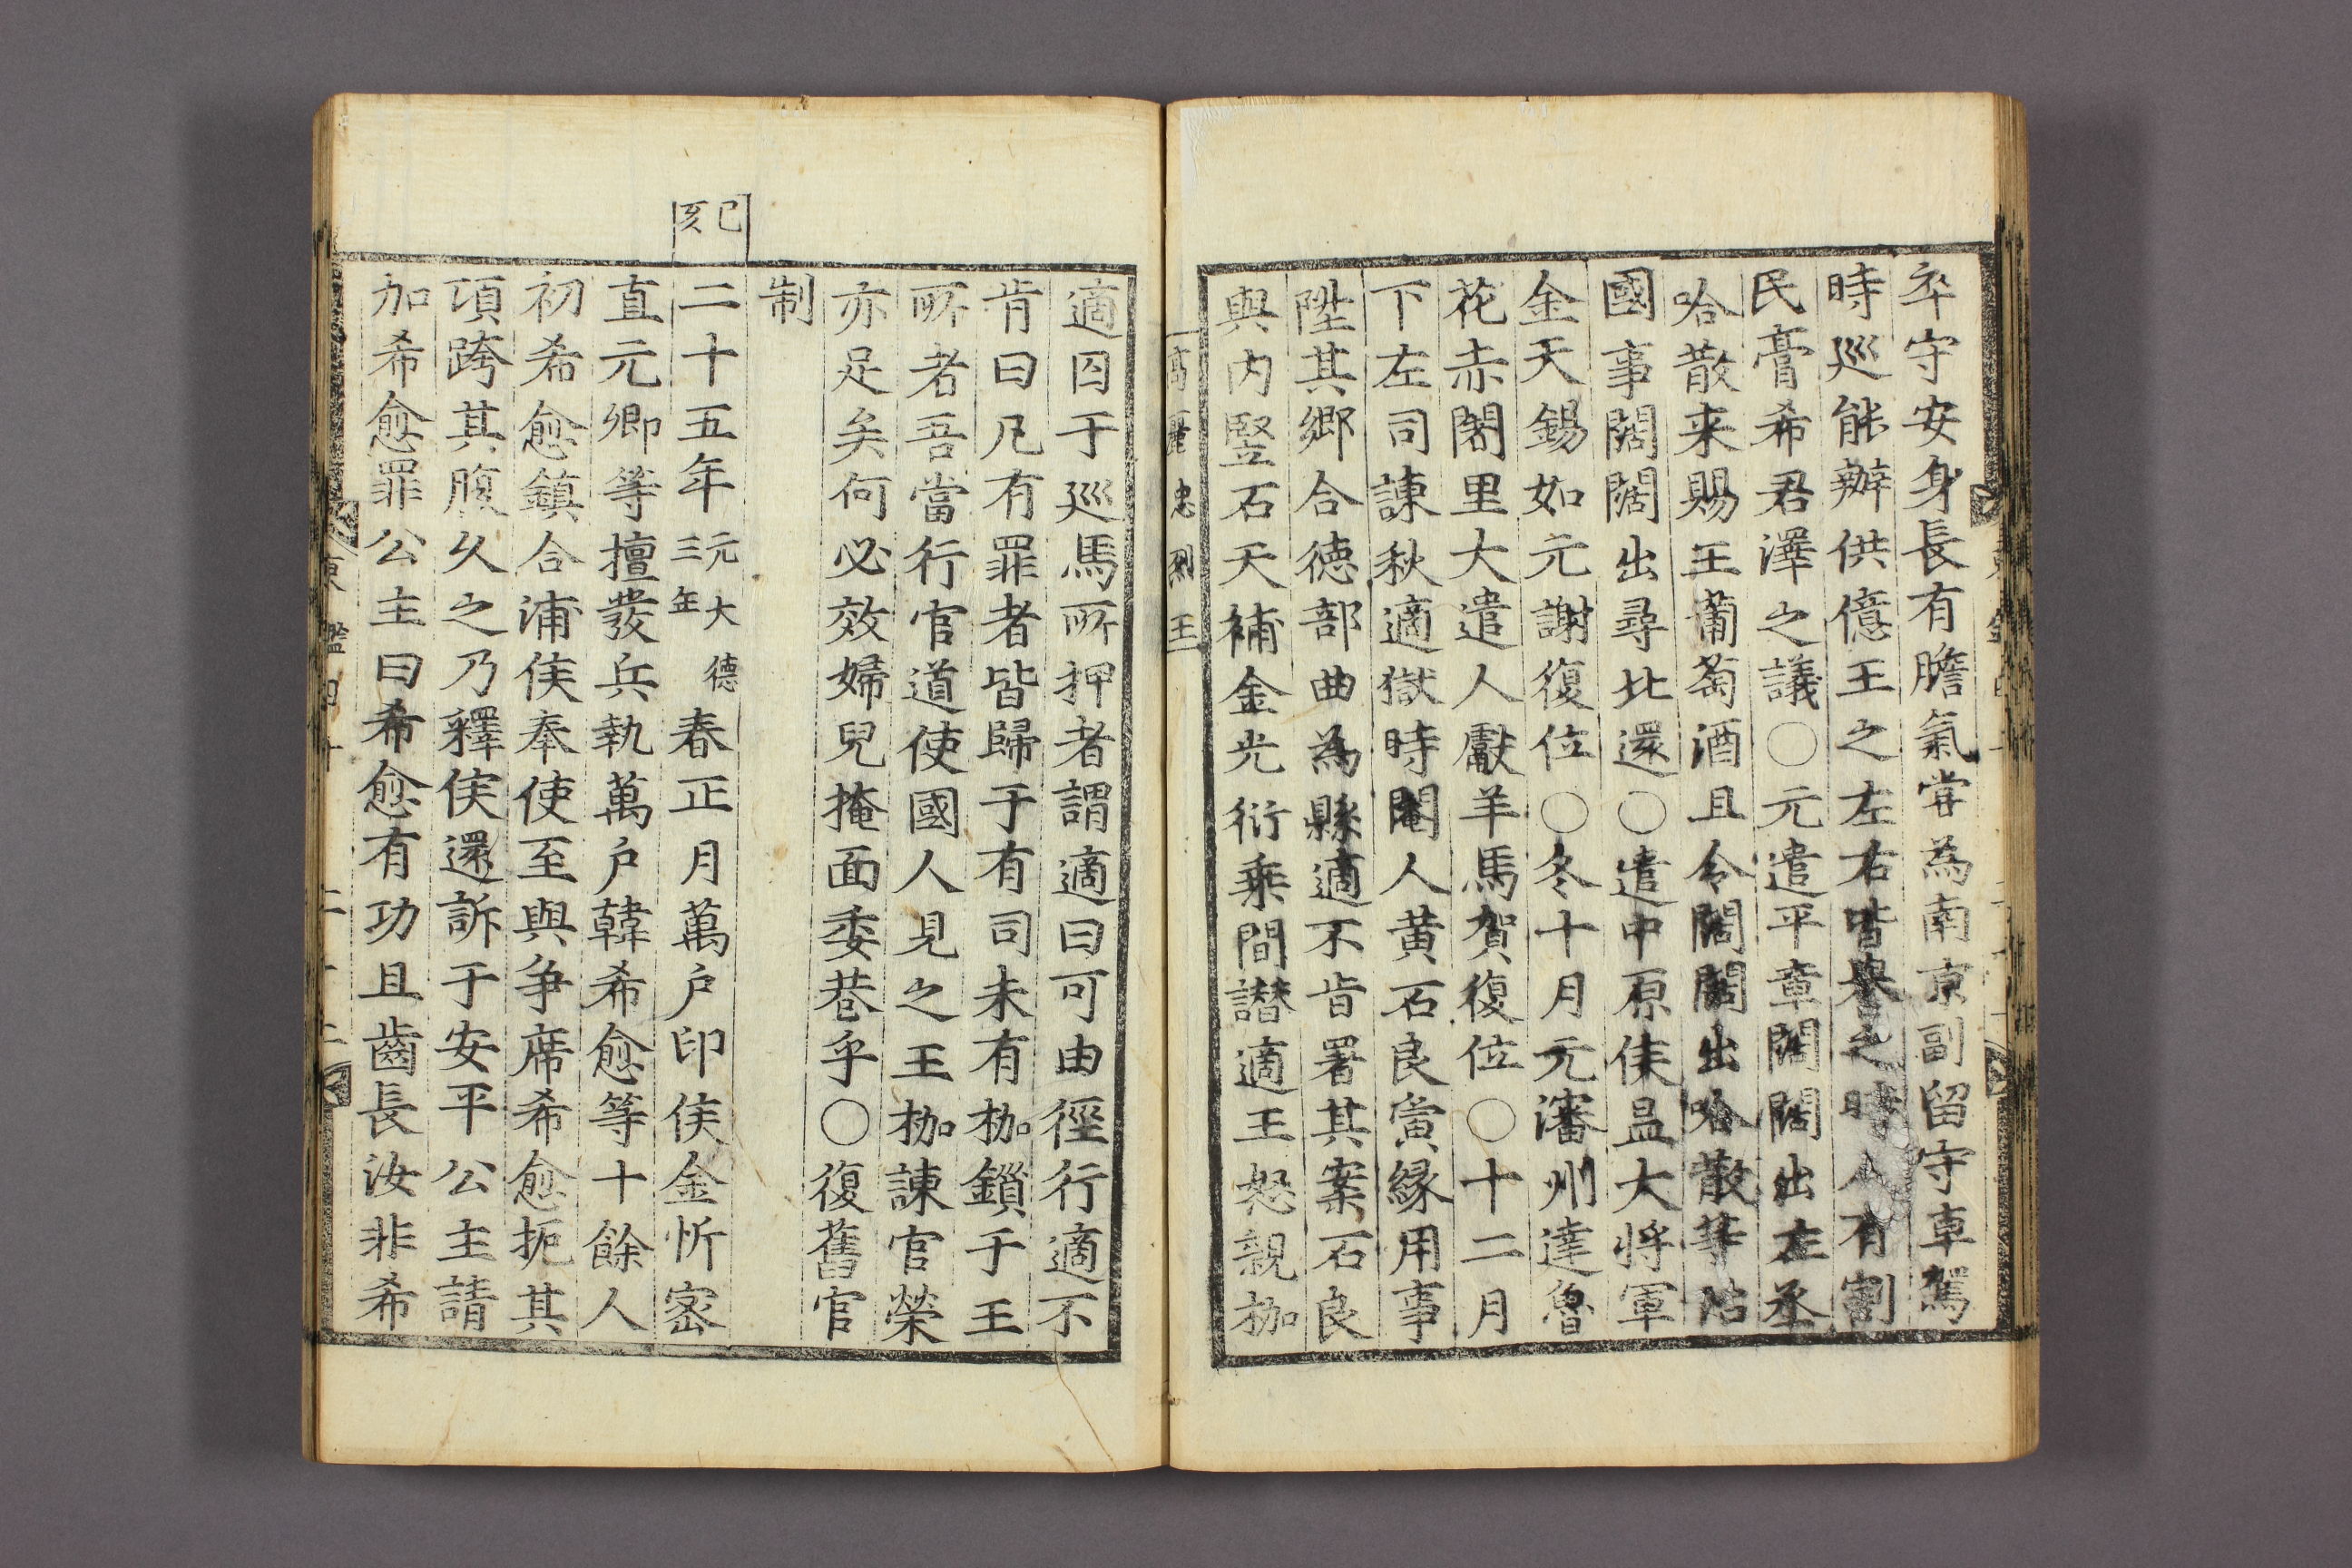 卒守安身長有膽氣嘗為南京副留守車駕
時巡能辦供億王之左右皆譽之時人有割
民膏希君澤之議〇元遣平章闊闊出左丞
哈散来賜王葡萄酒且令闊闊出哈散等詰
國事闊闊出尋北還〇遣中原侯昷大將軍
金天錫如元謝復位〇冬十月元瀋州達魯
花赤闍里大遣人獻羊馬賀復位〇十二月
下左司諫秋適獄時閹人黄石良夤緣用事
陞其鄉合德部曲為縣適不肯署其案石良
與內竪石天補金光衍乘間譖適王怒親枷
高麗忠烈王
適囚于巡馬所押者謂適曰可由徑行適不
肯曰凡有罪者皆歸于有司未有枷鎖于王
所者吾當行官道使國人見之王枷諫官榮
亦足矣何必效婦兒掩面委巷乎〇復舊官
制
己亥
二十五年元大德三年春正月萬户印侯金忻密
直元卿等擅發兵執萬户韓希愈等十餘人
初希愈鎮合浦侯奉使至與爭席希愈扼其
項跨其腹久之乃釋侯還訴于安平公主請
加希愈罪公主曰希愈有功且齒長汝非希